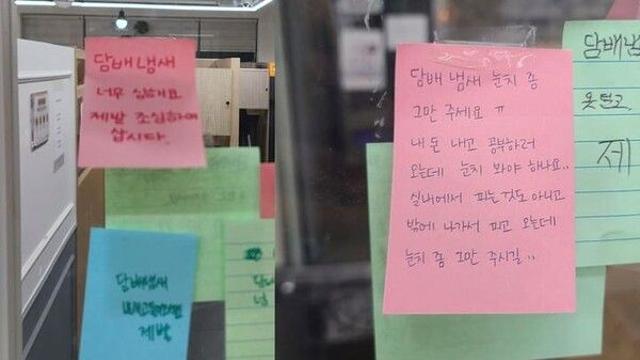 담배 냄새
너무 심해요
제발 조심하며
삽시다.
담배냄새
제발
담배 냄새 눈치 좀
그만 주세요 ㅠ
내 돈 내고 공부하러
오는데 눈치 봐야 하나요..
실내에서 피는 것도 아니고
밖에 나가서 피고 오는데
눈치 좀 그만 주시길..
담배냄
제